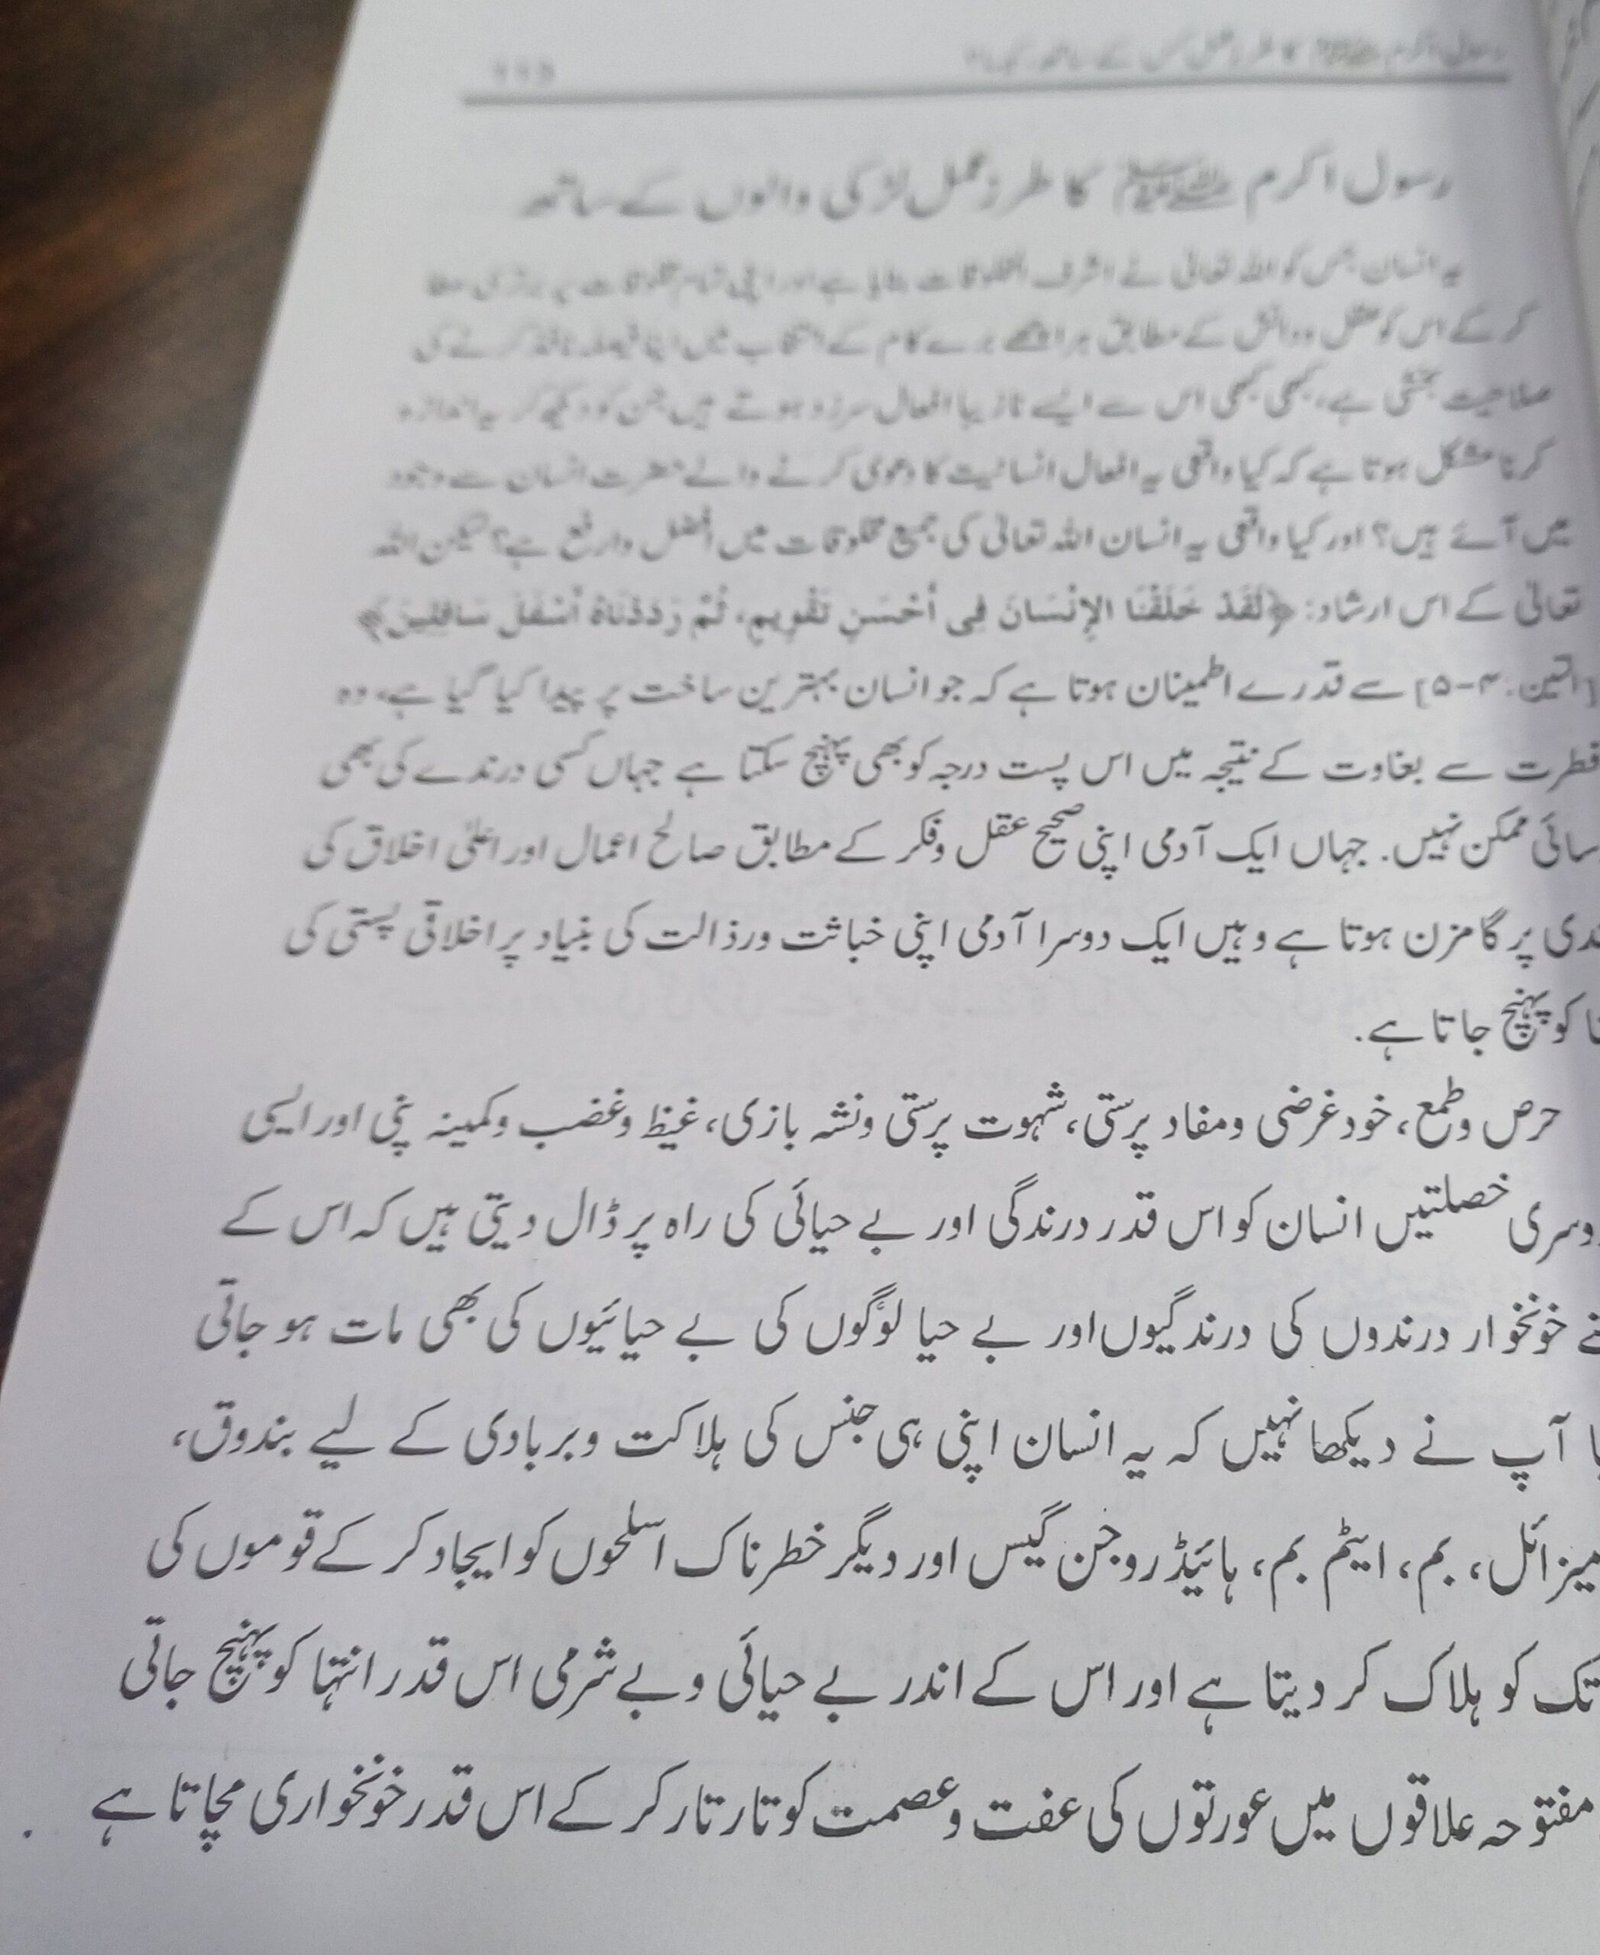 رسول اکرم ﷺ کا طرز عمل کس کے ساتھ کیسا؟
رسول اکرم ﷺ کا طرز عمل لڑکی والوں کے ساتھ
یہ انسان جس کو اللہ تعالیٰ نے اشرف المخلوقات بنایا ہے اور اپنی تمام مخلوقات پر برتری عطا
کر کے اس کو عقل ودانش کے مطابق ہر اچھے برے کام کے انتخاب میں اپنا فیصلہ نافذ کرنے کی
صلاحیت بخشی ہے، کبھی کبھی اس سے ایسے نازیبا افعال سرزد ہوتے ہیں جن کو دیکھ کر یہ اندازہ
کرنا مشکل ہوتا ہے کہ کیا واقعی یہ افعال انسانیت کا دعویٰ کرنے والے حضرت انسان سے وجود
میں آئے ہیں؟ اور کیا واقعی یہ انسان اللہ تعالیٰ کی جمیع مخلوقات میں افضل وارفع ہے؟ لیکن اللہ
تعالیٰ کے اس ارشاد: ﴿لَقَدْ خَلَقْنَا الإِنْسَانَ فِی أَحْسَنِ تَقْوِیمٍ، ثُمَّ رَدَدْنَاهُ أَسْفَلَ سَافِلِینَ﴾
[التین: ۴-۵] سے قدرے اطمینان ہوتا ہے کہ جو انسان بہترین ساخت پر پیدا کیا گیا ہے، وہ
فطرت سے بغاوت کے نتیجہ میں اس پست درجہ کو بھی پہنچ سکتا ہے جہاں کسی درندے کی بھی
رسائی ممکن نہیں. جہاں ایک آدمی اپنی صحیح عقل وفکر کے مطابق صالح اعمال اور اعلیٰ اخلاق کی
ندی پر گامزن ہوتا ہے وہیں ایک دوسرا آدمی اپنی خباثت ورذالت کی بنیاد پر اخلاقی پستی کی
کو پہنچ جاتا ہے.
حرص وطمع، خود غرضی ومفاد پرستی، شہوت پرستی ونشہ بازی، غیظ وغضب وکمینہ پنی اور ایسی
دوسری خصلتیں انسان کو اس قدر درندگی اور بے حیائی کی راہ پر ڈال دیتی ہیں کہ اس کے
خونخوار درندوں کی درندگیوں اور بے حیا لوگوں کی بے حیائیوں کی بھی مات ہو جاتی
آپ نے دیکھا نہیں کہ یہ انسان اپنی ہی جنس کی ہلاکت وبربادی کے لیے بندوق،
میزائل، بم، ایٹم بم، ہائیڈروجن گیس اور دیگر خطرناک اسلحوں کو ایجاد کر کے قوموں کی
تک کو ہلاک کر دیتا ہے اور اس کے اندر بے حیائی وبے شرمی اس قدر انتہا کو پہنچ جاتی
مفتوحہ علاقوں میں عورتوں کی عفت وعصمت کو تار تار کر کے اس قدر خونخواری مچاتا ہے